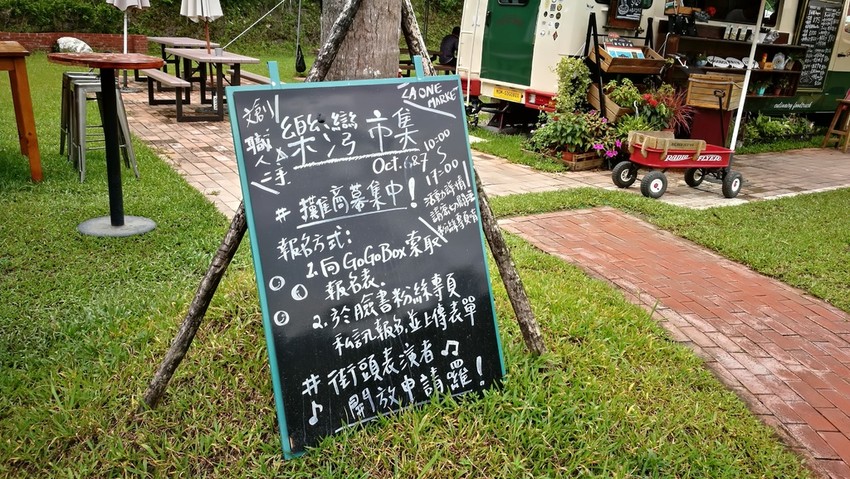 文創
職人
二手
樂灣市集
ONE
MARKET
Oct. 6&7
10:00
17:00
活動詳情
請密切關注
粉絲專頁
#攤商募集中!
報名方式:
1.向GoGoBox索取
報名表.
2.於臉書粉絲專頁
私訊報名,並上傳表單
#街頭表演者
開放申請囉!
RADIO FLYER